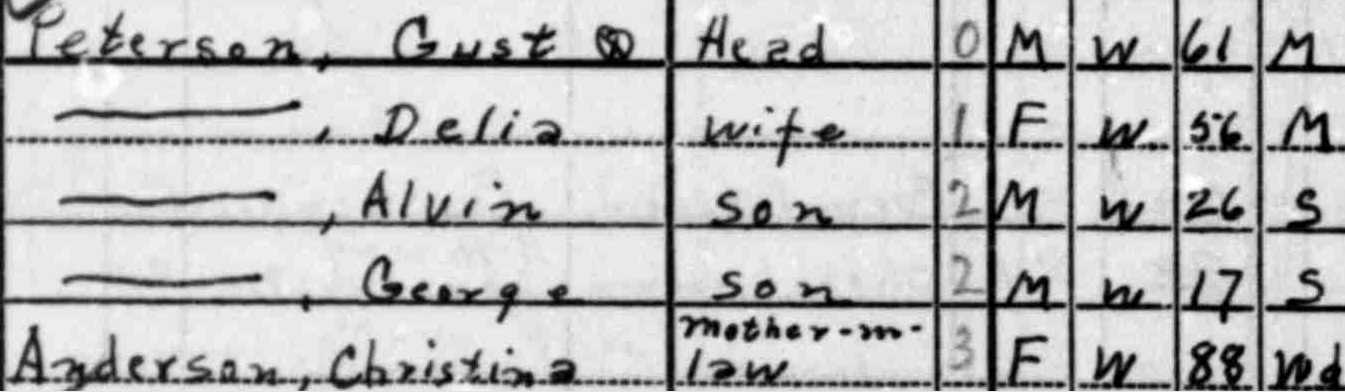 Peterson, Gust ⓧ Head 0 M W 61 M
———, Delia wife 1 F W 56 M
———, Alvin son 2 M W 26 S
———, George son 2 M W 17 S
Anderson, Christina mother-in-law 3 F W 88 Wd